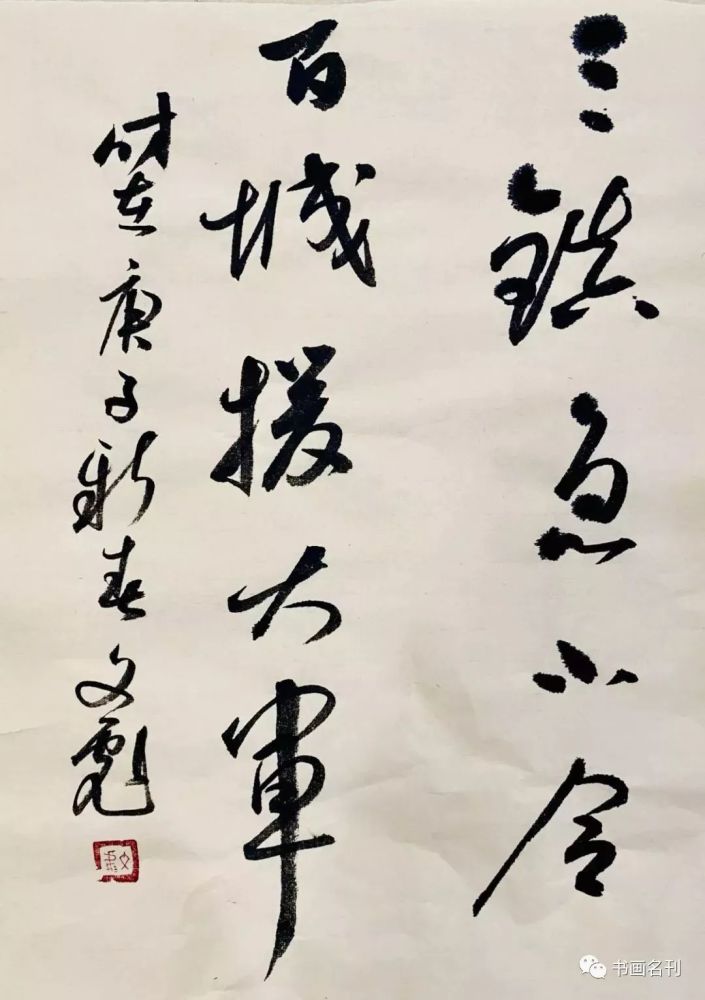 三镇急小令
百城援大军
时在庚子新春文彪
书画名刊